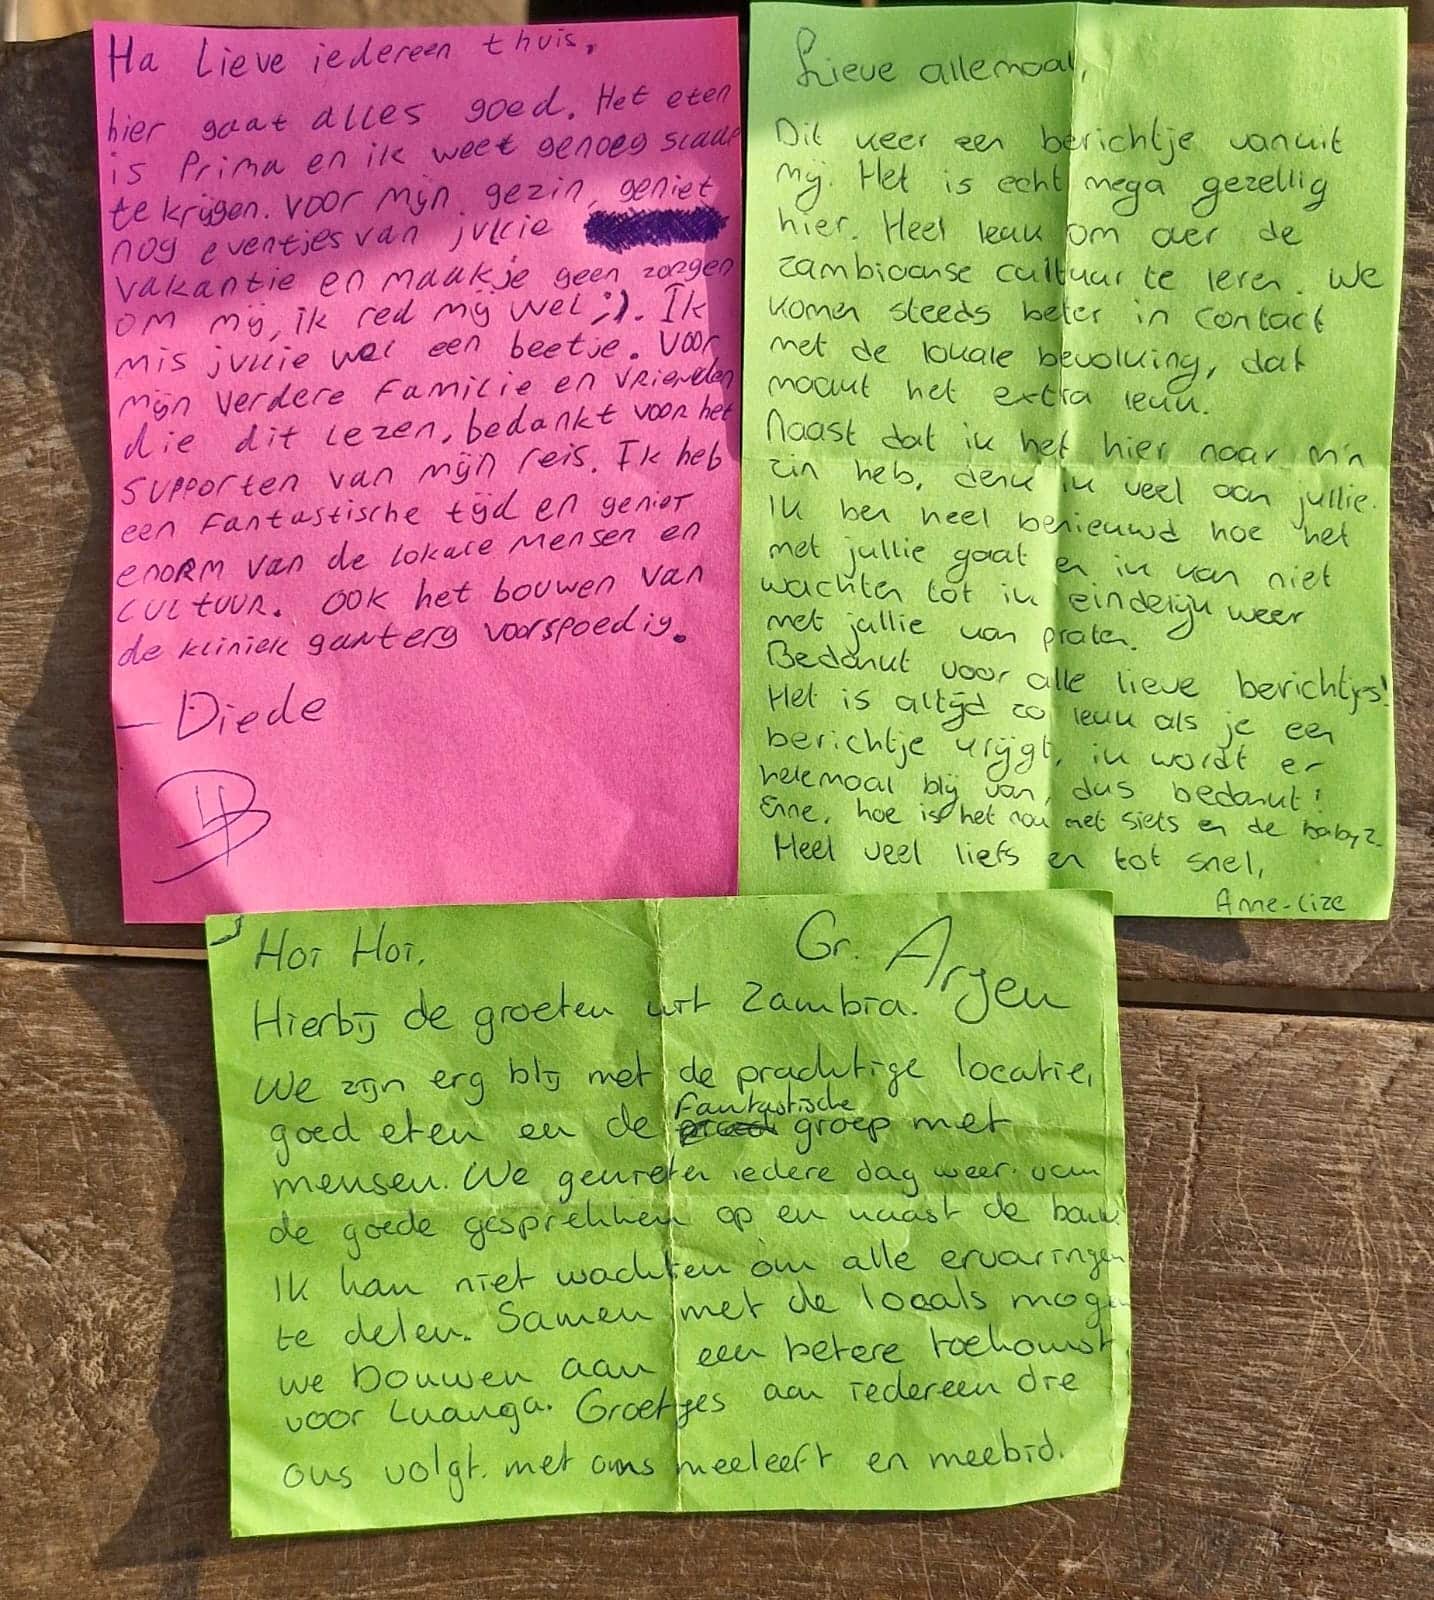 Ha Lieve iedereen thuis,
hier gaat alles goed. Het eten
is Prima en ik weet genoeg slaap
te krijgen. voor mijn gezin, geniet
nog eventjes van jullie
vakantie en maak je geen zorgen
om mij, ik red mij wel ;). Ik
mis jullie wel een beetje. voor
mijn verdere Familie en vrienden
die dit lezen, bedankt voor het
supporten van mijn reis. Ik heb
een Fantastische tijd en geniet
enorm van de lokale mensen en
cultuur. ook het bouwen van
de kliniek gaat erg voorspoedig.
- Diede
Lieve allemaal,
Dit keer een berichtje vanuit
mij. Het is echt mega gezellig
hier. Heel leuk om over de
zambiaanse cultuur te leren. We
komen steeds beter in contact
met de lokale bevolking, dat
maakt het extra leuk.
Naast dat ik het hier naar m'n
zin heb, denk ik veel aan jullie.
Ik ben heel benieuwd hoe het
met jullie gaat en ik kan niet
wachten tot ik eindelijk weer
met jullie kan praten.
Bedankt voor alle lieve berichtjes!
Het is altijd zo leuk als je een
berichtje krijgt, ik wordt er
helemaal blij van, dus bedankt!
Enne, hoe is het nou met Siets en de baby?
Heel veel liefs en tot snel,
Anne-Lize
Hoi Hoi,
Gr. Arjen
Hierbij de groeten uit Zambia.
We zijn erg blij met de prachtige locatie,
goed eten en de Fantastische groep met
mensen. We genieten iedere dag weer van
de goede gesprekken op en naast de bouw
Ik kan niet wachten om alle ervaringen
te delen. Samen met de locals mogen
we bouwen aan een betere toekomst
voor Luanga. Groetjes aan iedereen die
ons volgt, met ons meeleeft en meebid.